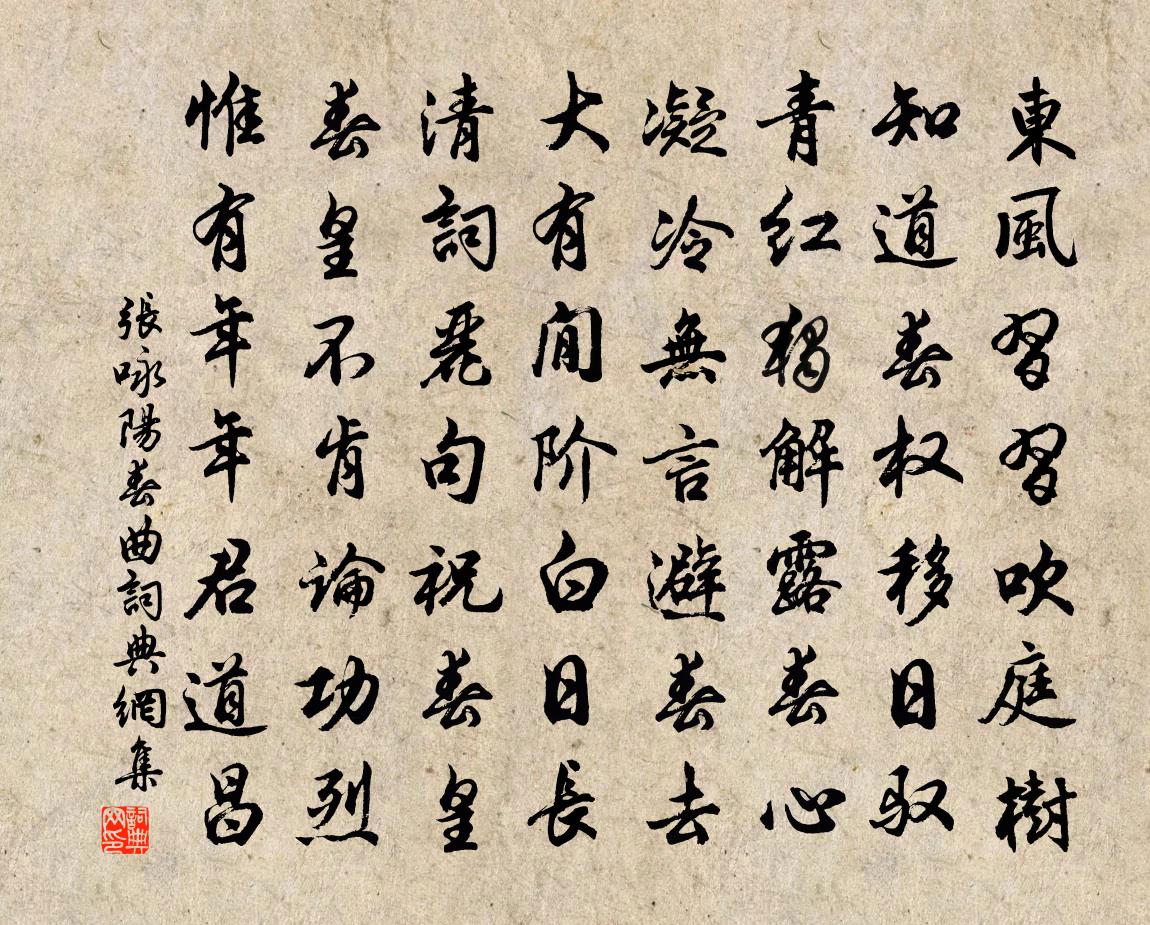 東風習習吹庭樹
知道春权移日驭
青紅獨解露春心
凝冷無言避春去
大有閒阶白日長
清詞麗句祝春皇
春皇不肯論功烈
惟有年年君道昌
張咏陽春曲詞典網集
詞典网印